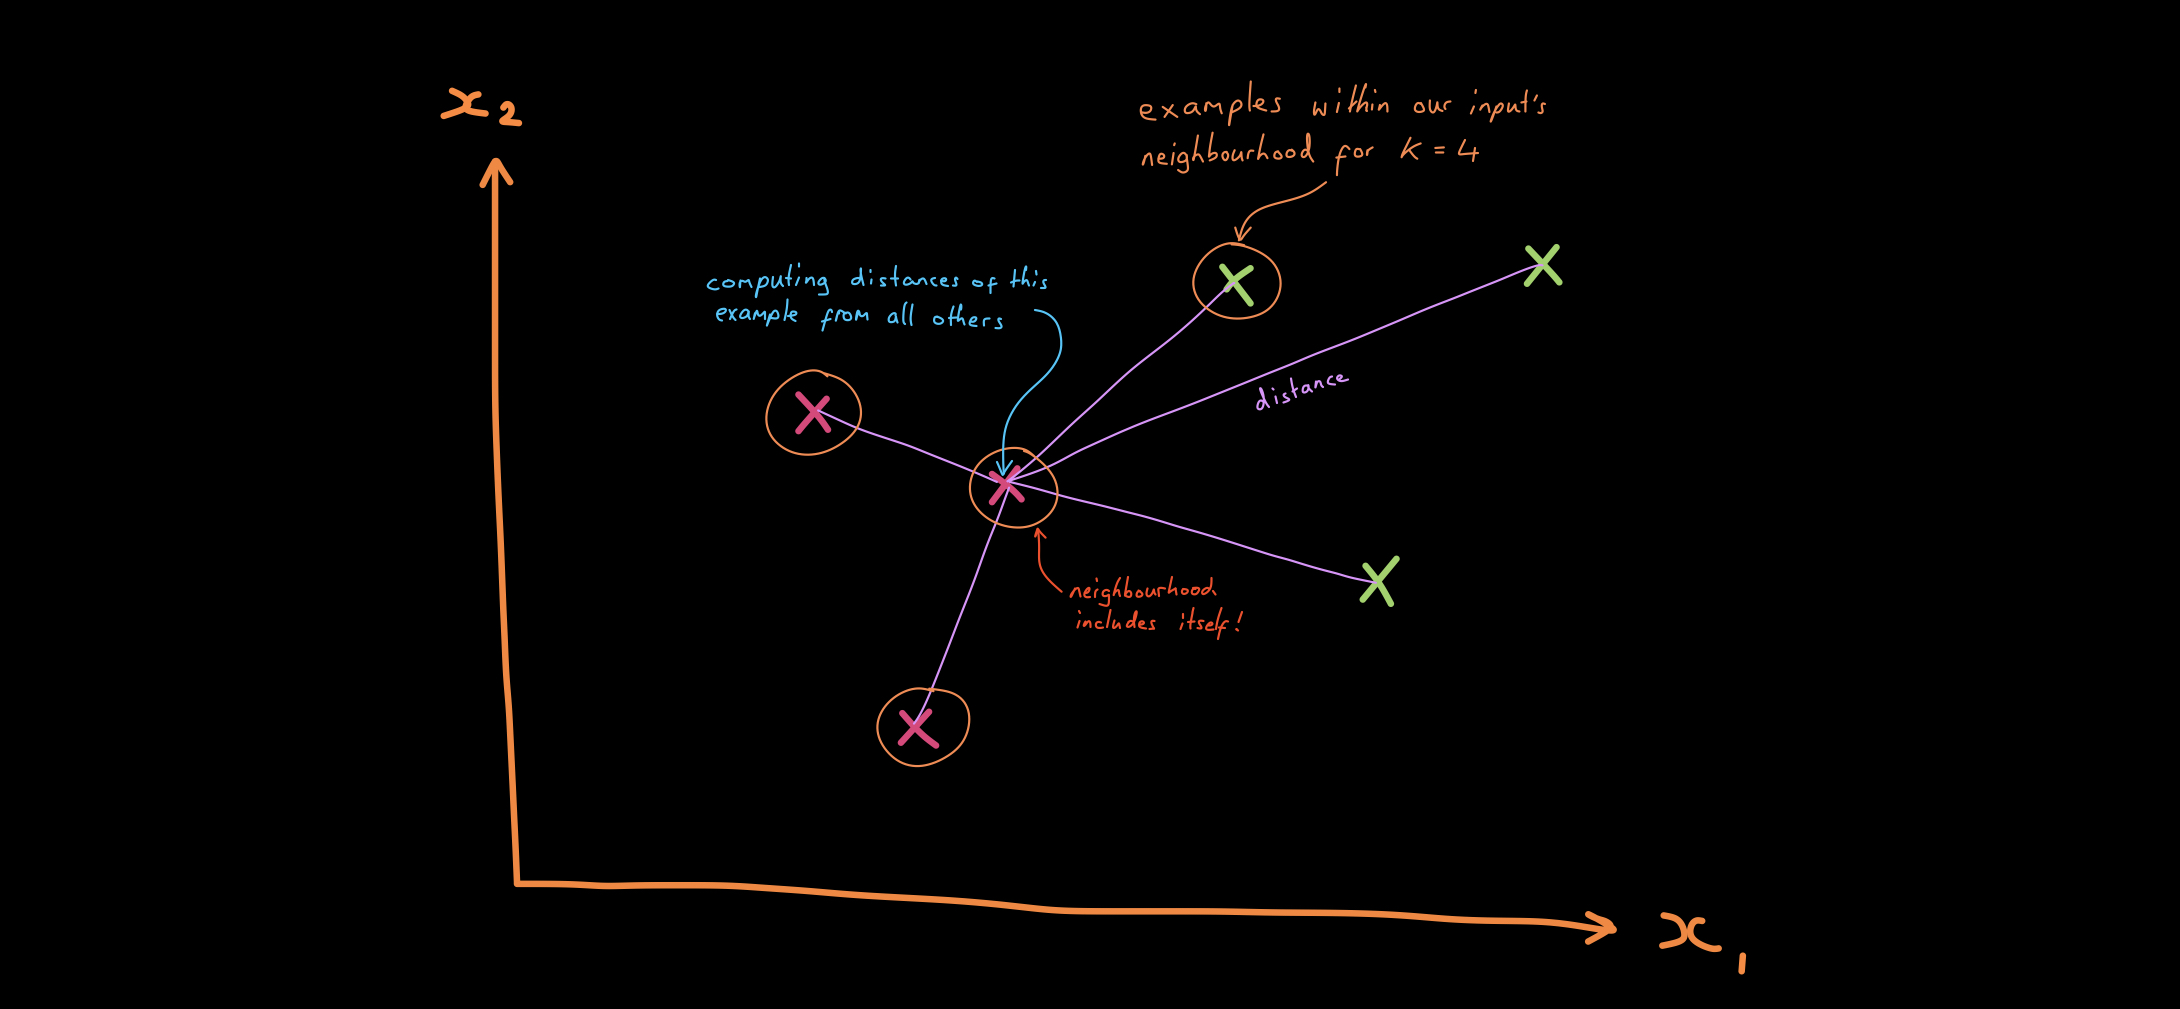 x2
examples within our input's
neighbourhood for K = 4
computing distances of this
example from all others
distance
neighbourhood
includes itself!
x1